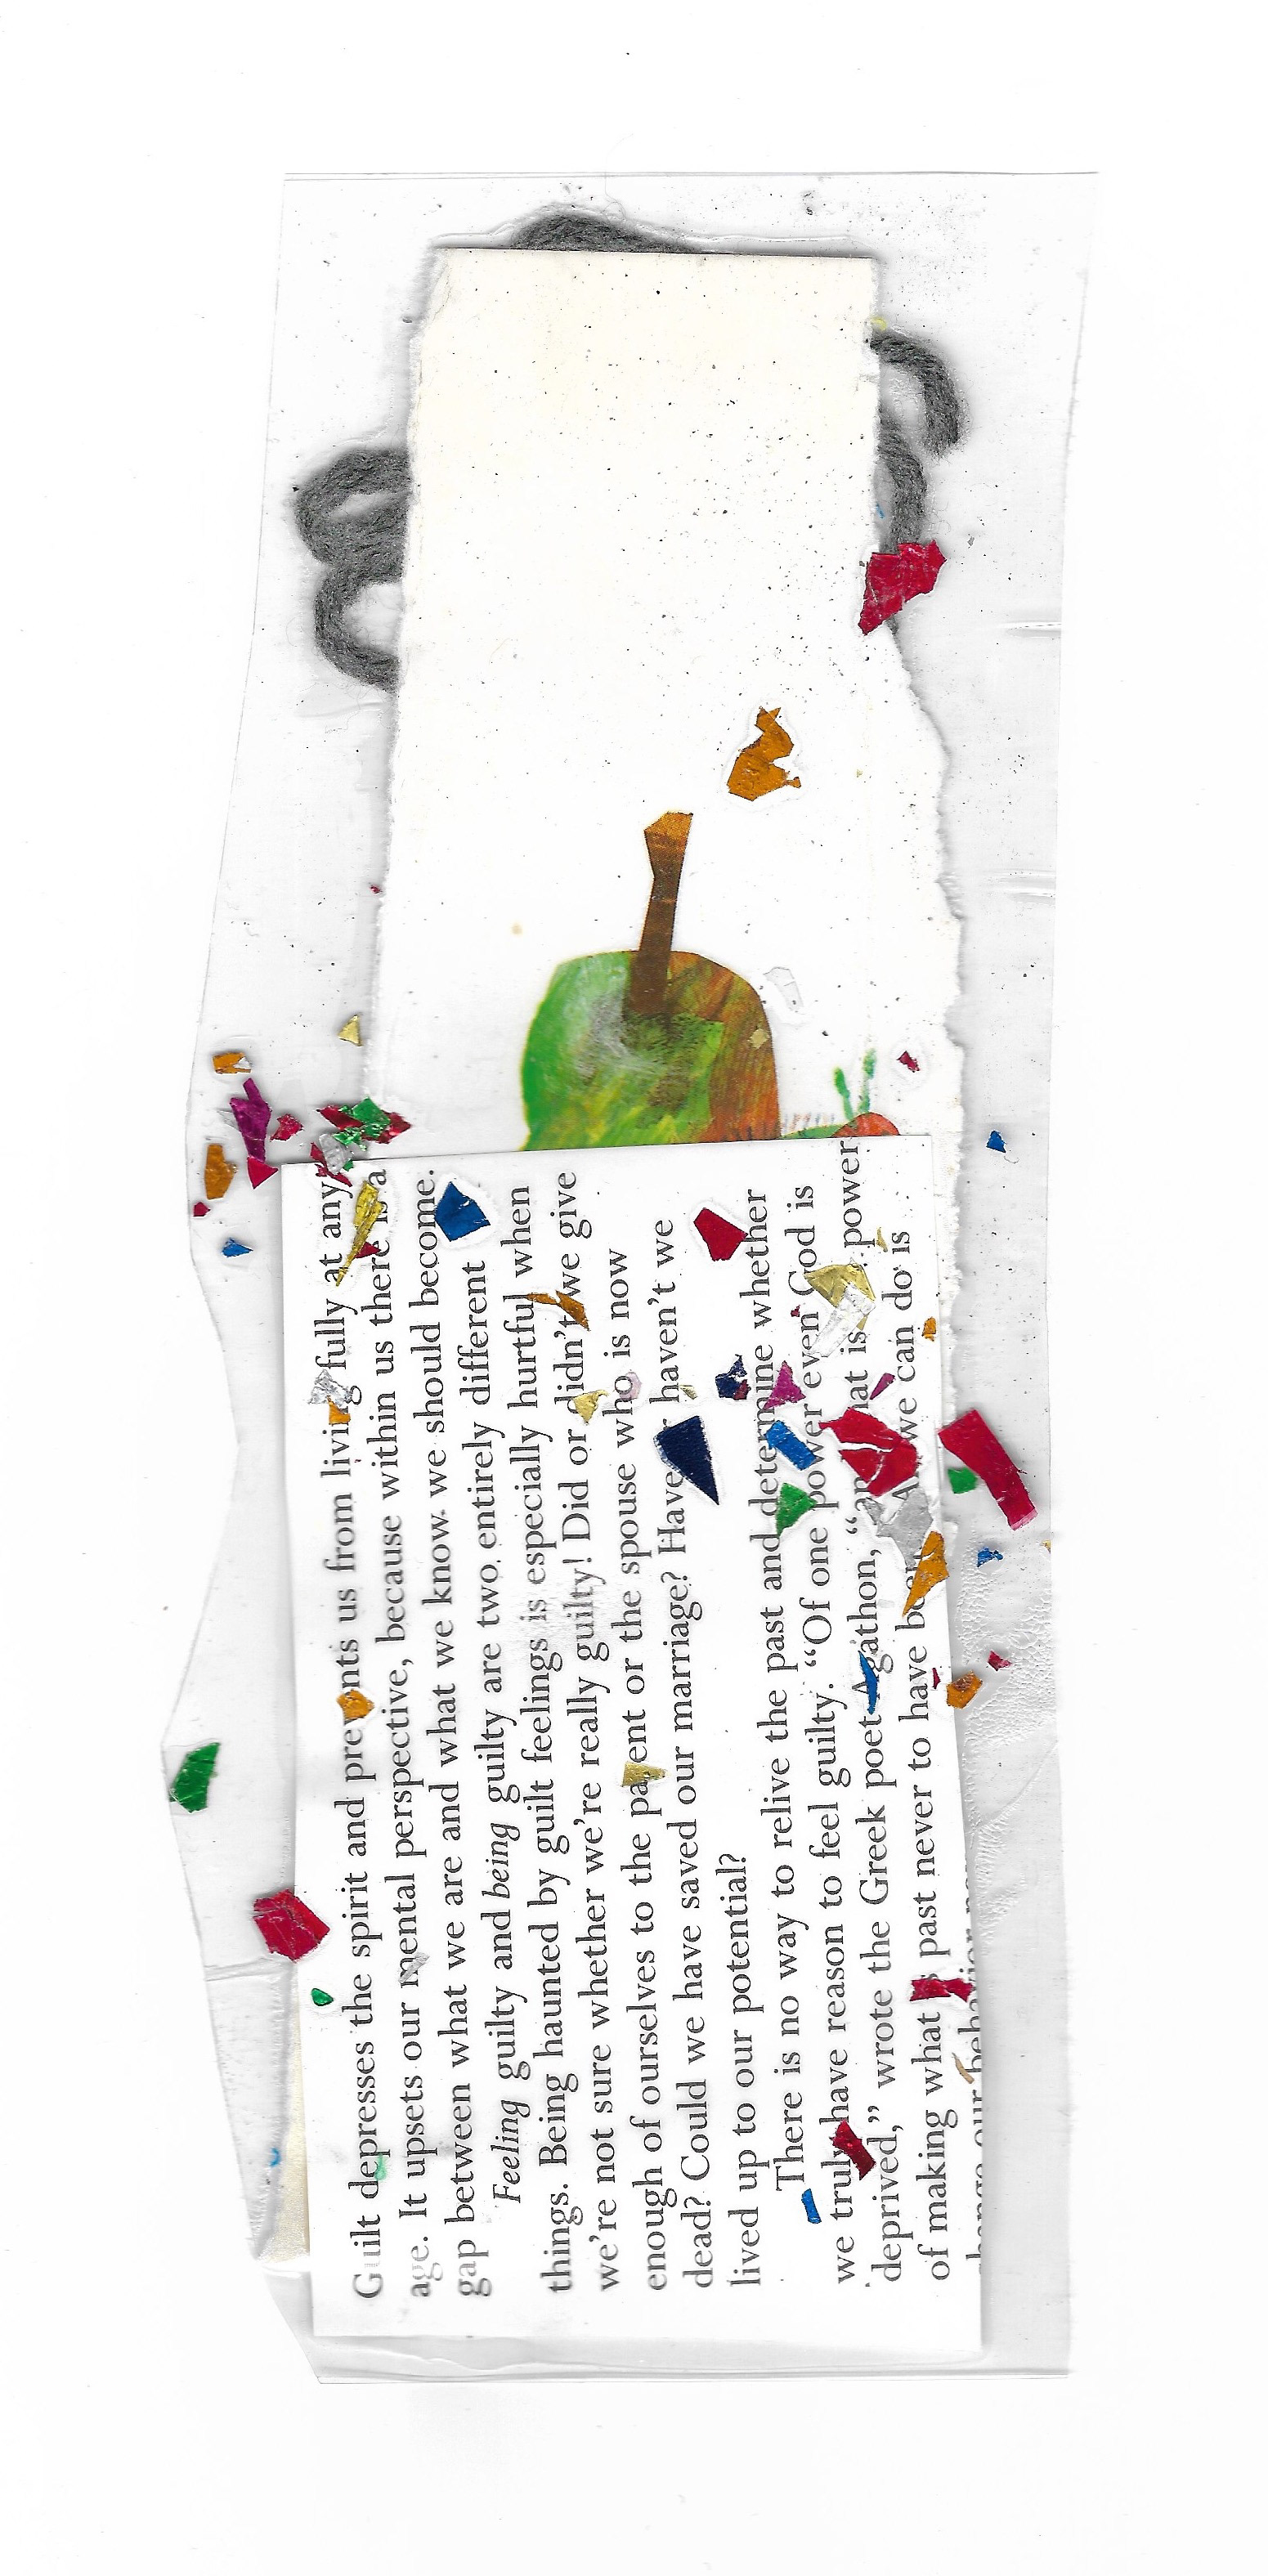 Guilt depresses the spirit and prevents us from living fully at any
age. It upsets our mental perspective, because within us there is a
gap between what we are and what we know we should become.
Feeling guilty and being guilty are two entirely different
things. Being haunted by guilt feelings is especially hurtful when
we're not sure whether we're really guilty! Did or didn't we give
enough of ourselves to the parent or the spouse who is now
dead? Could we have saved our marriage? Have haven't we
lived up to our potential?
There is no way to relive the past and determine whether
we truly have reason to feel guilty. “Of one power even God is
deprived,” wrote the Greek poet Agathon, “and that is power
of making what is past never to have been we can do is
our behavior